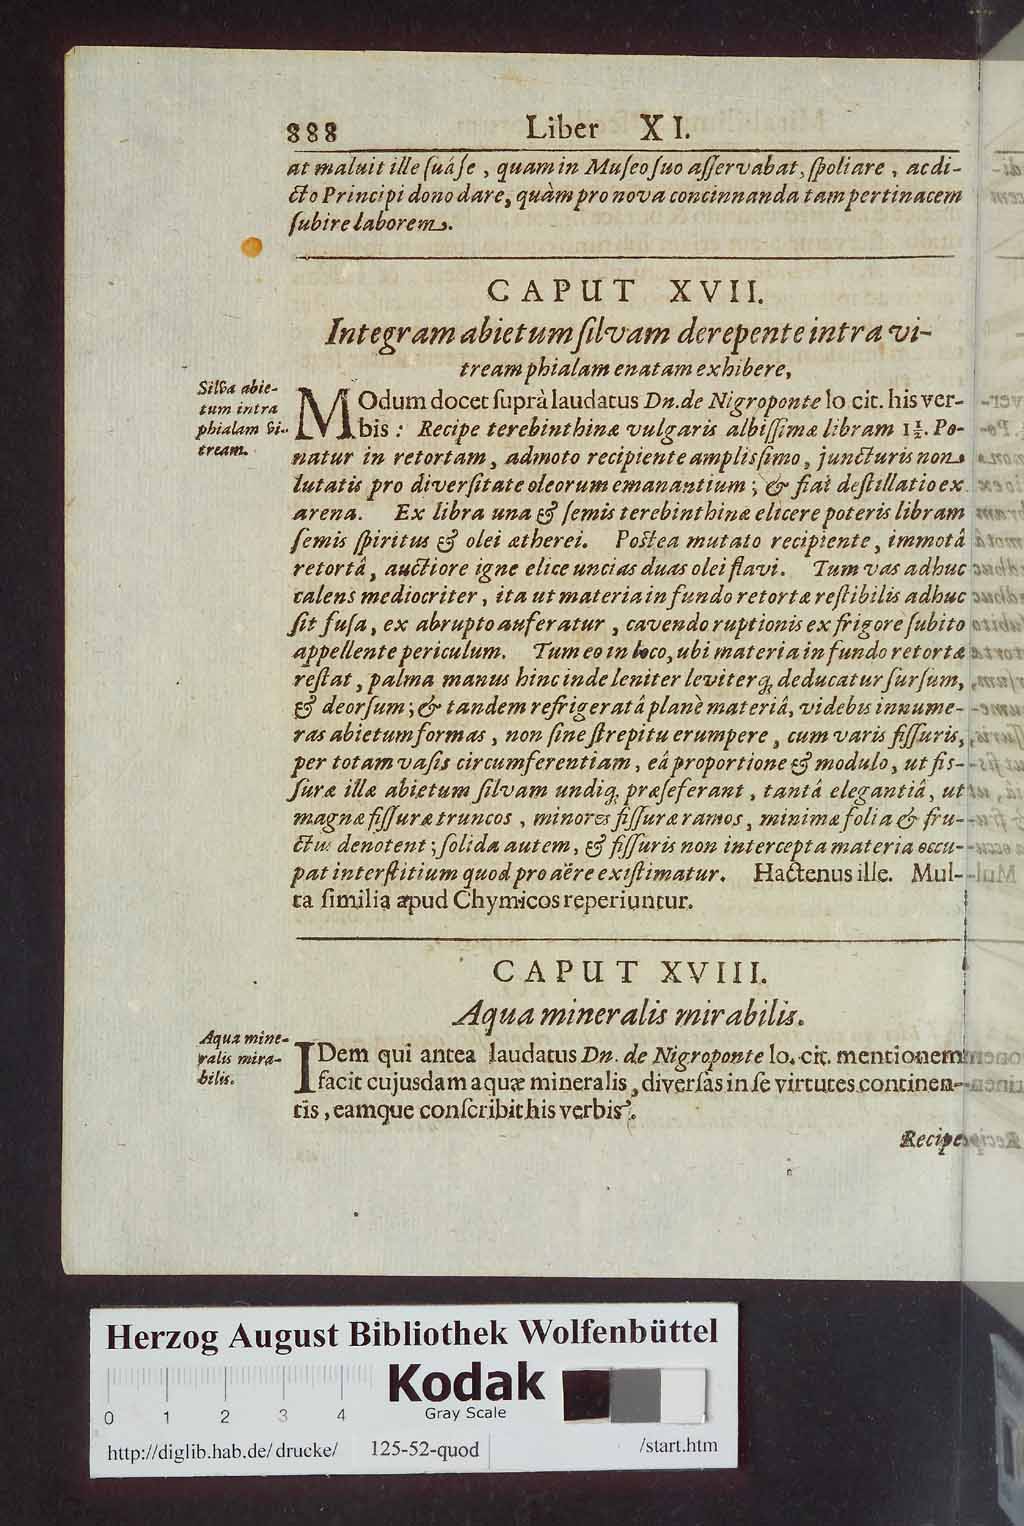 888 Liber XI.
at maluit ille ſuâſe, quam in Muſeo ſuo aſſervabat, ſpoliare, ac di-
cto Principi dono dare, quàm pro nova concinnanda tam pertinacem
ſubire laborem.
CAPUT XVII.
Integram abietum ſilvam derepente intra vi-
tream phialam enatam exhibere,
Silva abie-
tum intra
phialam vi-
tream.
MOdum docet ſuprà laudatus Dn. de Nigroponte lo cit. his ver-
bis: Recipe terebinthinæ vulgaris albiſſimæ libram 1½. Po-
natur in retortam, admoto recipiente ampliſſimo, juncturis non
lutatis pro diverſitate oleorum emanantium; & fiat deſtillatio ex
arena. Ex libra una & ſemis terebinthinæ elicere poteris libram
ſemis ſpiritus & olei ætherei. Poſtea mutato recipiente, immotâ
retortâ, auctiore igne elice uncias duas olei flavi. Tum vas adhuc
calens mediocriter, ita ut materia in fundo retortæ reſtibilis adhuc
ſit fuſa, ex abrupto auferatur, cavendo ruptionis ex frigore ſubito
appellente periculum. Tum eo in loco, ubi materia in fundo retortæ
reſtat, palma manus hinc inde leniter leviterq; deducatur ſurſum,
& deorſum; & tandem refrigeratâ planè materiâ, videbis innume-
ras abietum formas, non ſine ſtrepitu erumpere, cum varis fiſſuris,
per totam vaſis circumferentiam, eâ proportione & modulo, ut fiſ-
ſuræ illæ abietum ſilvam undiq; præſeferant, tantâ elegantiâ, ut
magnæ fiſſuræ truncos, minores fiſſuræ ramos, minimæ folia & fru-
ctus denotent; ſolida autem, & fiſſuris non intercepta materia occu-
pat interſtitium quod pro aëre exiſtimatur. Hactenus ille. Mul-
ta ſimilia apud Chymicos reperiuntur.
CAPUT XVIII.
Aqua mineralis mirabilis.
Aqua mine-
ralis mira-
bilis.
IDem qui antea laudatus Dn. de Nigroponte lo. cit. mentionem
facit cujusdam aquæ mineralis, diverſas in ſe virtutes continen-
tis, eamque conſcribit his verbis.
Recipe
Herzog August Bibliothek Wolfenbüttel
Kodak
Gray Scale
0 1 2 3 4
http://diglib.hab.de/drucke/ 125-52-quod /start.htm